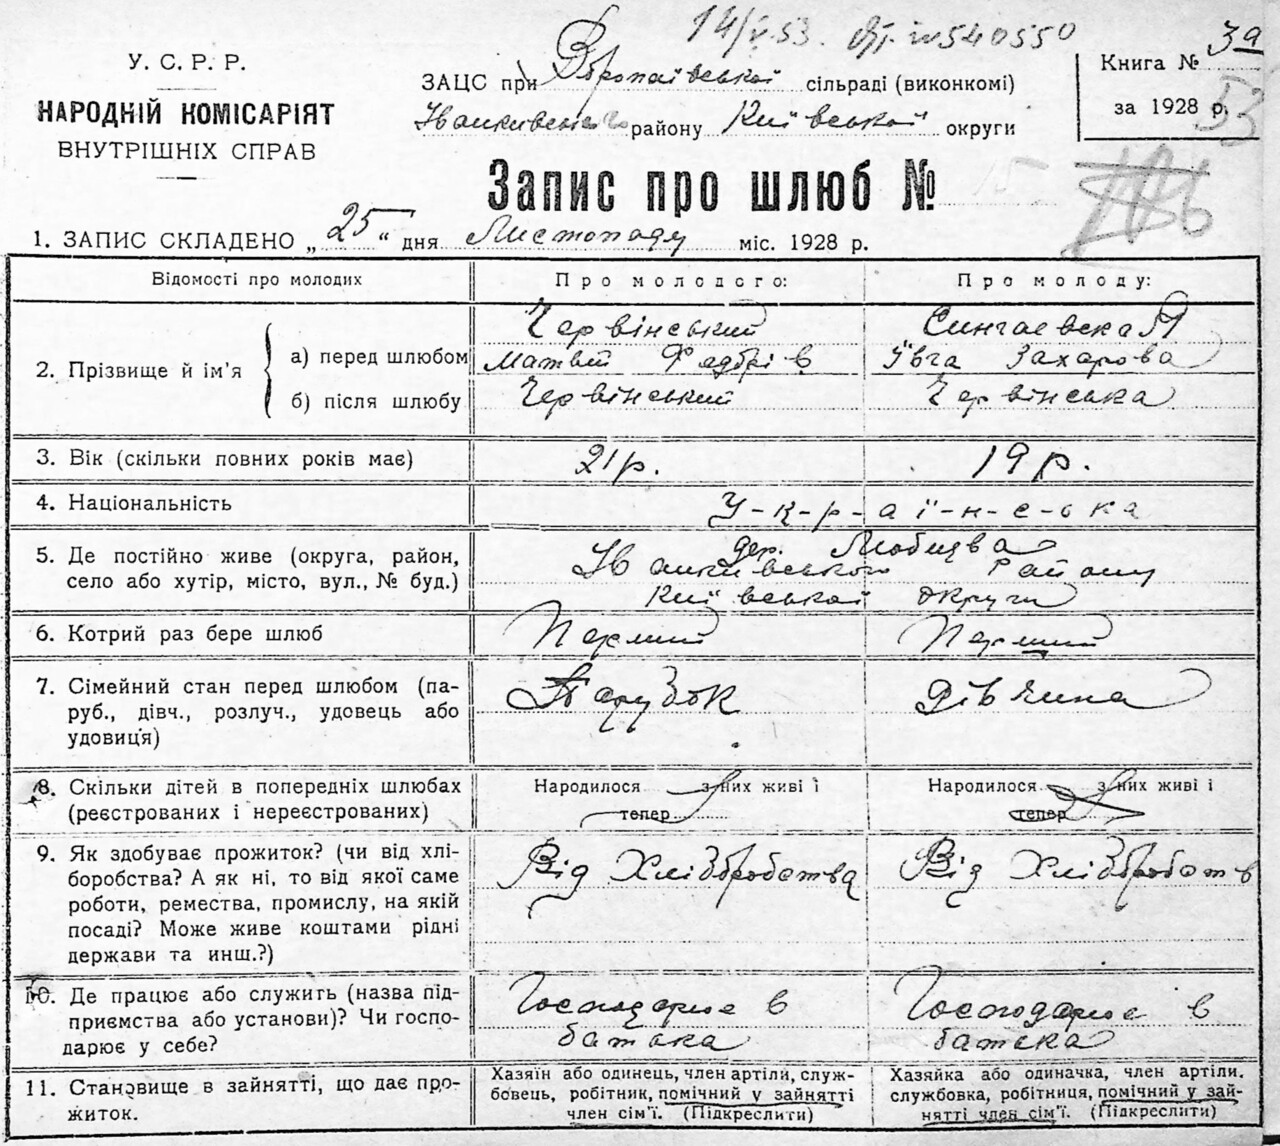 14/V.53. № 540550
У. С. Р. Р.
НАРОДНІЙ КОМІСАРІЯТ
ВНУТРІШНІХ СПРАВ
ЗАЦС при сільраді (виконкомі)
району Київської округи
Книга № 3а
за 1928 р.
53
Запис про шлюб № 15
1. ЗАПИС СКЛАДЕНО „25“ дня Листопаду міс. 1928 р.
Відомості про молодих
Про молодого:
Про молоду:
2. Прізвище й ім'я
а) перед шлюбом
б) після шлюбу
Червінський
Матвій
Червінський
Сингаевская
Ївга Захарова
Червінська
3. Вік (скільки повних років має)
21 р.
19 р.
4. Національність
У-к-р-а-ї-н-с-ька
5. Де постійно живе (округа, район,
село або хутір, місто, вул., № буд.)
дер.
Району
Київської округи
6. Котрий раз бере шлюб
Перший
Перший
7. Сімейний стан перед шлюбом (па-
руб., дівч., розлуч., удовець або
удовиця)
Парубок
Дівчина
8. Скільки дітей в попередніх шлюбах
(реєстрованих і нереєстрованих)
Народилося з них живі і
тепер
Народилося з них живі і
тепер
9. Як здобуває прожиток? (чи від хлі-
боробства? А як ні, то від якої саме
роботи, ремества, промислу, на якій
посаді? Може живе коштами рідні
держави та инш.?)
Від Хлібробства
Від Хлібробств
10. Де працює або служить (назва під-
приємства або установи)? Чи госпо-
дарює у себе?
Господарює в
батька
Господарює в
батька
11. Становище в зайнятті, що дає про-
житок.
Хазяїн або одинець, член артіли, служ-
бовець, робітник, помічний у зайнятті
член сім'ї. (Підкреслити)
Хазяйка або одиначка, член артіли.
службовка, робітниця, помічний у зай-
нятті член сім'ї. (Підкреслити)